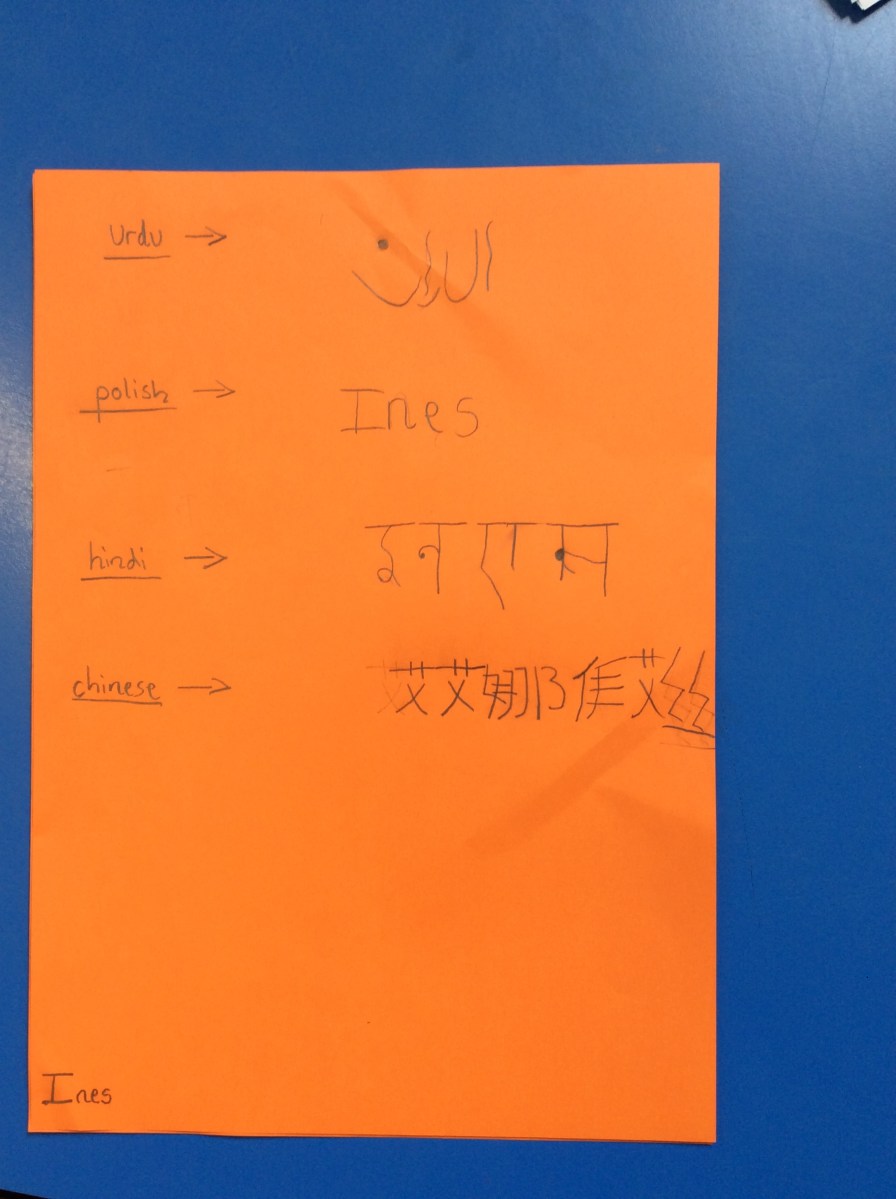 Urdu →
polish → Ines
hindi → इन एस
chinese → 艾艾娜隹艾丝
Ines